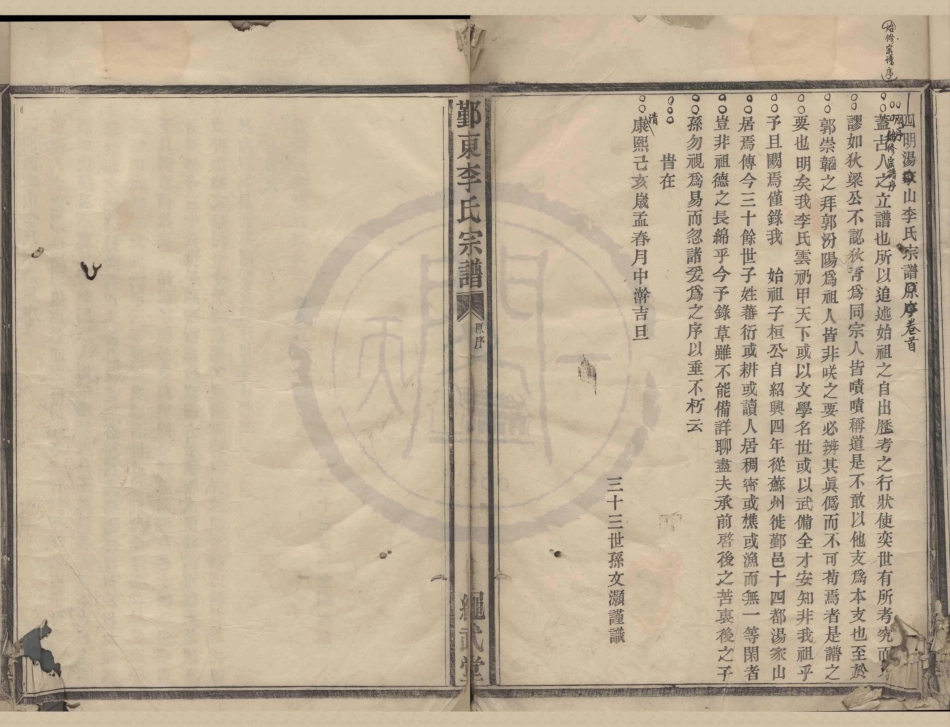 始修宗譜序
四明湯家山李氏宗譜原序卷首
蓋古人之立譜也所以追述始祖之自出歷考之行狀使奕世有所考究而
謬如狄梁公不認狄青爲同宗人皆嘖嘖稱道是不敢以他支爲本支也至於
郭崇韜之拜郭汾陽爲祖人皆非咲之要必辨其眞僞而不可苟焉者是譜之
要也明矣我李氏雲礽甲天下或以文學名世或以武備全才安知非我祖乎
予且闕焉僅錄我 始祖子桓公自紹興四年從蘇州徙鄞邑十四都湯家山
居焉傳今三十餘世子姓蕃衍或耕或讀人居稠密或樵或漁而無一等閑者
豈非祖德之長綿乎今予錄草雖不能備詳聊盡夫承前啓後之苦衷後之子
孫勿視爲易而忽諸爰爲之序以垂不朽云
旹在
清
康熙己亥歲孟春月中澣吉旦
三十三世孫文灝謹識
鄞東李氏宗譜
原序
繩武堂